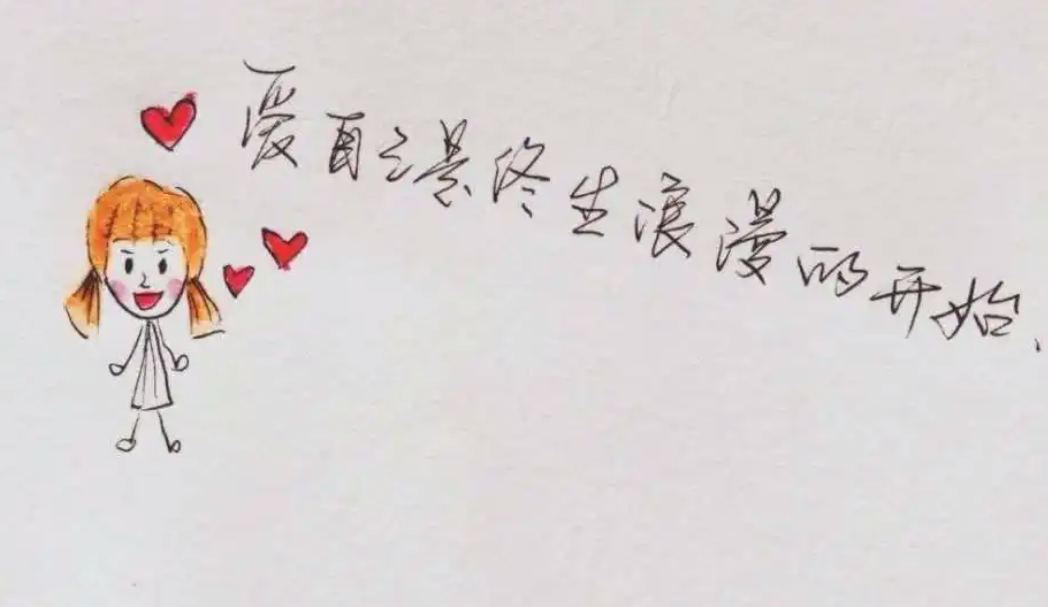 爱自己是终生浪漫的开始.